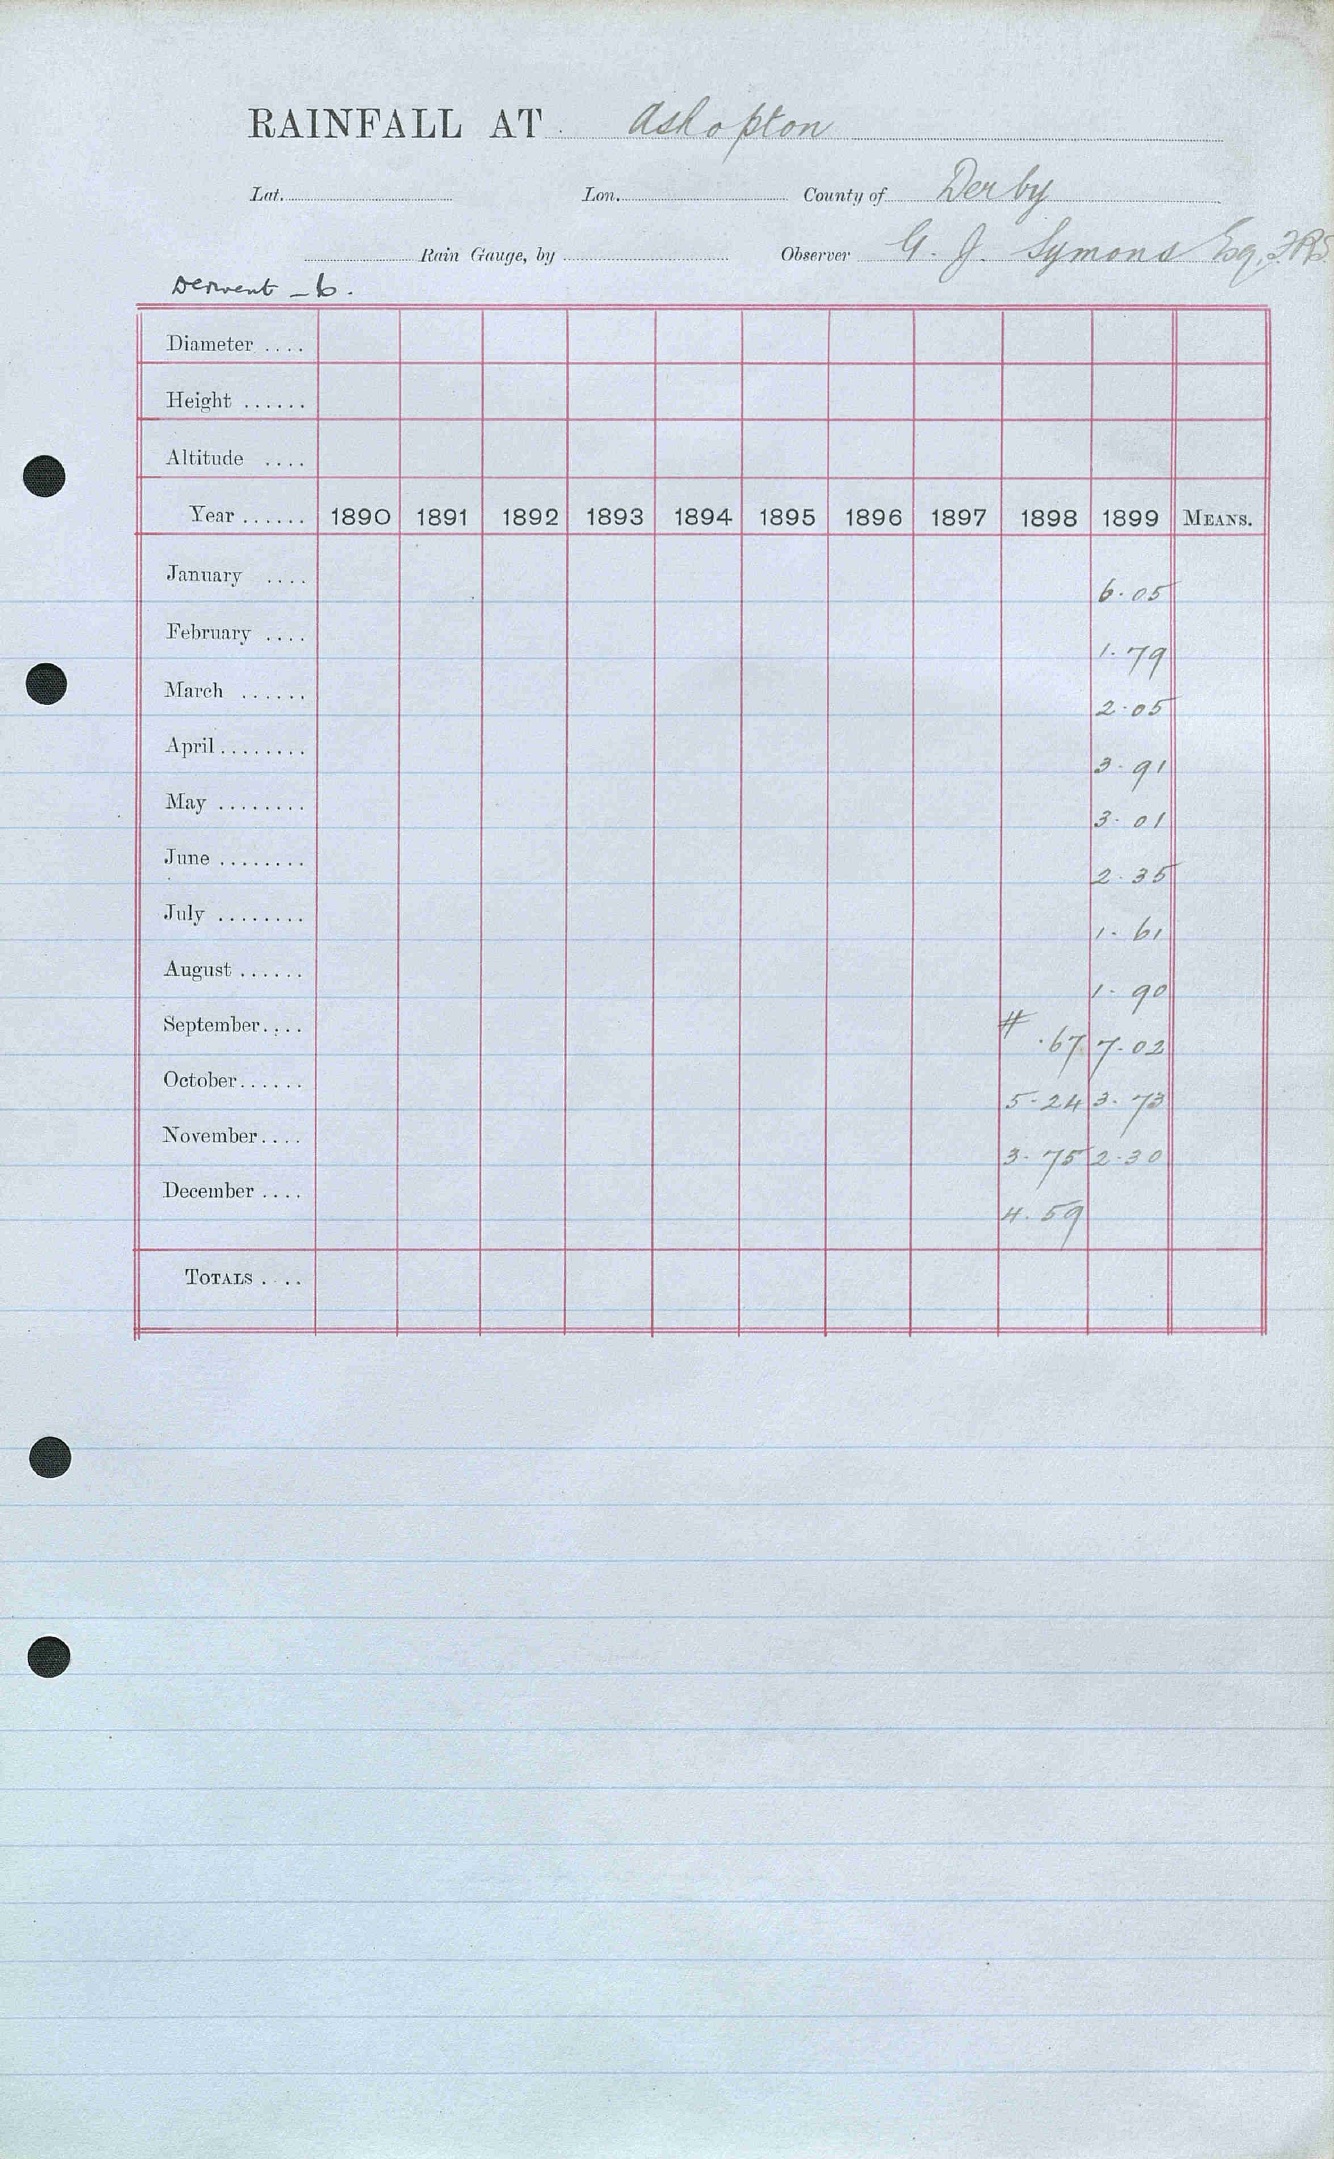 RAINFALL AT Ashopton
Lat. Lon. County of Derby
Rain Gauge, by Observer G. J. Symons Esq, F.R.S.
Derwent - 6.
Diameter ....
Height ......
Altitude ....
Year ...... 1890 1891 1892 1893 1894 1895 1896 1897 1898 1899 MEANS.
January .... 6.05
February .... 1.79
March ...... 2.05
April ........ 3.91
May ........ 3.01
June ........ 2.35
July ........ 1.61
August ...... 1.90
September.... # .67 7.02
October...... 5.24 3.73
November.... 3.75 2.30
December .... 4.59
TOTALS ....